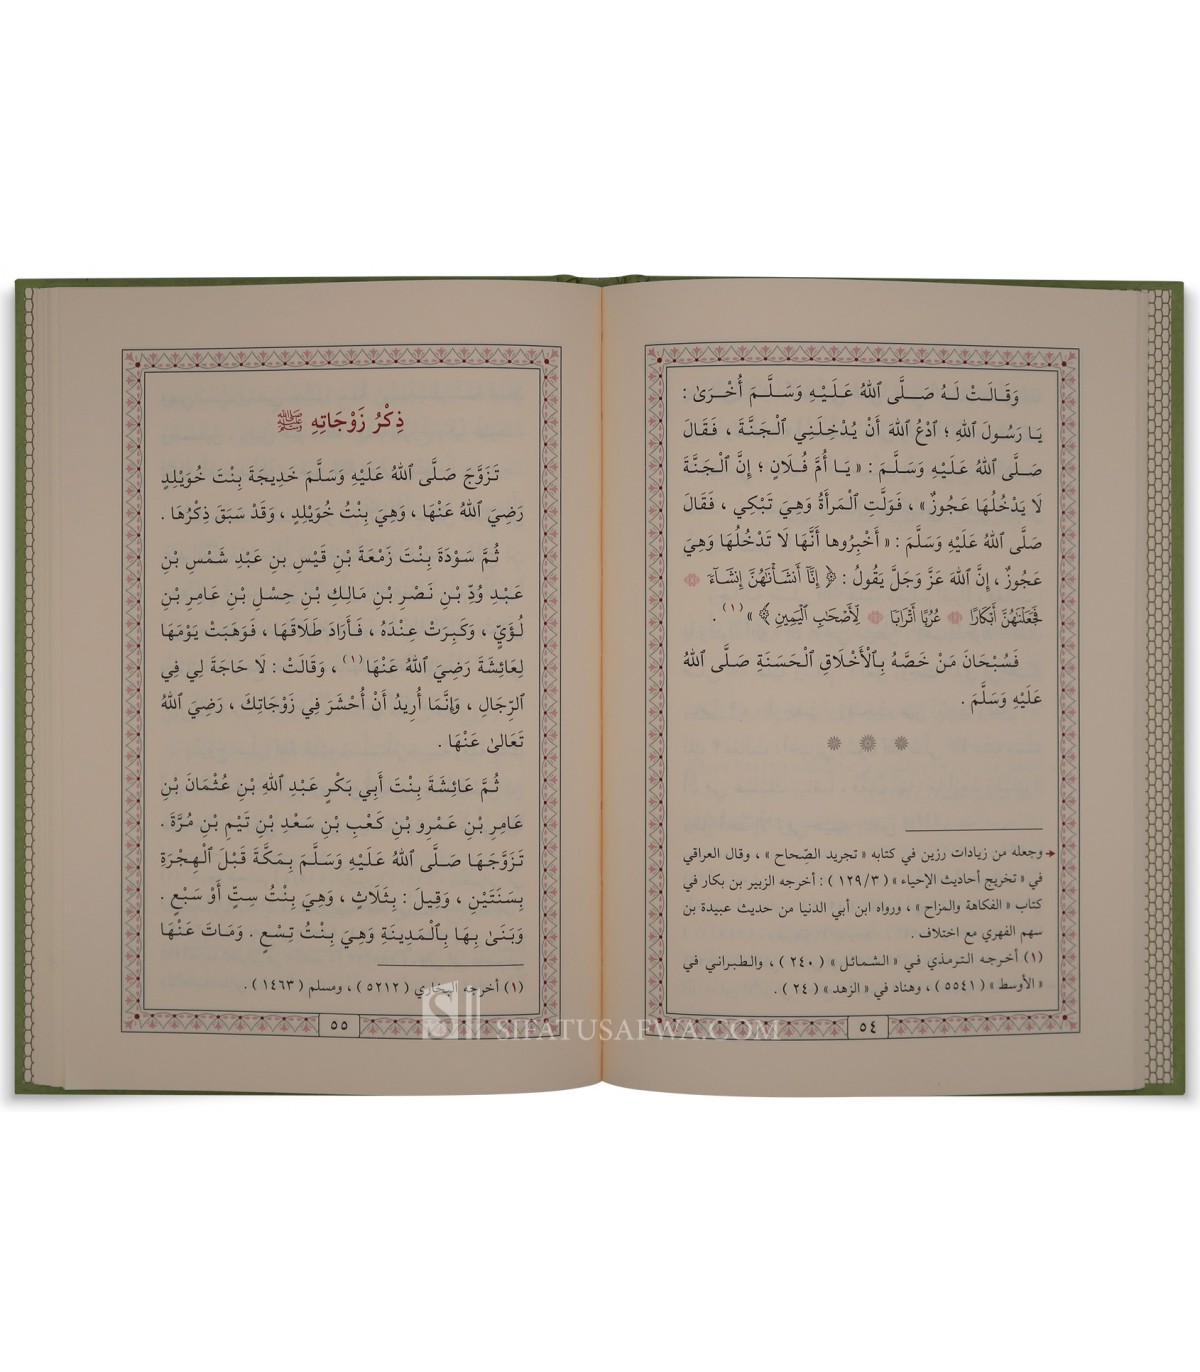 وَقَالَتْ لَهُ صَلَّى ٱللهُ عَلَيْهِ وَسَلَّمَ أُخْرَىٰ :
يَا رَسُولَ ٱللهِ ؛ ٱدْعُ ٱللهَ أَنْ يُدْخِلَنِي ٱلْجَنَّةَ ، فَقَالَ
صَلَّى ٱللهُ عَلَيْهِ وَسَلَّمَ : « يَا أُمَّ فُلَانٍ ؛ إِنَّ ٱلْجَنَّةَ
لَا يَدْخُلُهَا عَجُوزٌ » ، فَوَلَّتِ ٱلْمَرْأَةُ وَهِيَ تَبْكِي ، فَقَالَ
صَلَّى ٱللهُ عَلَيْهِ وَسَلَّمَ : « أَخْبِرُوها أَنَّهَا لَا تَدْخُلُهَا وَهِيَ
عَجُوزٌ ، إِنَّ ٱللهَ عَزَّ وَجَلَّ يَقُولُ : ﴿ إِنَّآ أَنشَأْنَٰهُنَّ إِنشَآءً
فَجَعَلْنَٰهُنَّ أَبْكَارًا عُرُبًا أَتْرَابًا لِّأَصْحَٰبِ ٱلْيَمِينِ ﴾ » (١) .
فَسُبْحَانَ مَنْ خَصَّهُ بِٱلْأَخْلَاقِ ٱلْحَسَنَةِ صَلَّى ٱللهُ
عَلَيْهِ وَسَلَّمَ .
وجعله من زيادات رزين في كتابه « تجريد الصِّحاح » ، وقال العراقي
في « تخريج أحاديث الإحياء » ( ١٢٩/٣ ) : أخرجه الزبير بن بكار في
كتاب « الفكاهة والمزاح » ، ورواه ابن أبي الدنيا من حديث عبيدة بن
سهم الفهري مع اختلاف .
(١) أخرجه الترمذي في « الشمائل » ( ٢٤٠ ) ، والطبراني في
« الأوسط » ( ٥٥٤١ ) ، وهناد في « الزهد » ( ٢٤ ) .
٥٤
ذِكْرُ زَوْجَاتِهِ ﷺ
تَزَوَّجَ صَلَّى ٱللهُ عَلَيْهِ وَسَلَّمَ خَدِيجَةَ بِنْتَ خُوَيْلِدٍ
رَضِيَ ٱللهُ عَنْهَا ، وَهِيَ بِنْتُ خُوَيْلِدٍ ، وَقَدْ سَبَقَ ذِكْرُهَا .
ثُمَّ سَوْدَةَ بِنْتَ زَمْعَةَ بْنِ قَيْسِ بنِ عَبْدِ شَمْسِ بْنِ
عَبْدِ وُدِّ بْنِ نَصْرِ بْنِ مَالِكِ بْنِ حِسْلِ بْنِ عَامِرِ بْنِ
لُؤَيٍّ ، وَكَبِرَتْ عِنْدَهُ ، فَأَرَادَ طَلَاقَهَا ، فَوَهَبَتْ يَوْمَهَا
لِعَائِشَةَ رَضِيَ ٱللهُ عَنْهَا (١) ، وَقَالَتْ : لَا حَاجَةَ لِي فِي
ٱلرِّجَالِ ، وَإِنَّمَا أُرِيدُ أَنْ أُحْشَرَ فِي زَوْجَاتِكَ ، رَضِيَ ٱللهُ
تَعَالىٰ عَنْهَا .
ثُمَّ عَائِشَةَ بِنْتَ أَبِي بَكْرٍ عَبْدِ ٱللهِ بْنِ عُثْمَانَ بْنِ
عَامِرِ بْنِ عَمْرِو بْنِ كَعْبِ بْنِ سَعْدِ بْنِ تَيْمِ بْنِ مُرَّةَ .
تَزَوَّجَهَا صَلَّى ٱللهُ عَلَيْهِ وَسَلَّمَ بِمَكَّةَ قَبْلَ ٱلْهِجْرَةِ
بِسَنَتَيْنِ ، وَقِيلَ : بِثَلَاثٍ ، وَهِيَ بِنْتُ سِتٍّ أَوْ سَبْعٍ .
وَبَنَىٰ بِهَا بِٱلْمَدِينَةِ وَهِيَ بِنْتُ تِسْعٍ . وَمَاتَ عَنْهَا
(١) أخرجه البخاري ( ٥٢١٢ ) ، ومسلم ( ١٤٦٣ ) .
٥٥
SIFATUSAFWA.COM